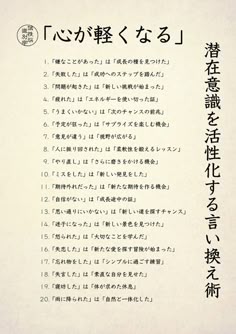 「心が軽くなる」
潜在意識を活性化する言い換え術
1.「嫌なことがあった」は「成長の種を見つけた」
2.「失敗した」は「成功へのステップを踏んだ」
3.「問題が起きた」は「新しい挑戦が始まった」
4.「疲れた」は「エネルギーを使い切った証」
5.「うまくいかない」は「次のチャンスの前兆」
6.「予定が狂った」は「サプライズを楽しむ機会」
7.「意見が違う」は「視野が広がる」
8.「人に振り回された」は「柔軟性を鍛えるレッスン」
9.「やり直し」は「さらに磨きをかける機会」
10.「ミスをした」は「新しい発見をした」
11.「期待外れだった」は「新たな期待を作る機会」
12.「自信がない」は「成長途中の証」
13.「思い通りにいかない」は「新しい道を探すチャンス」
14.「迷子になった」は「新しい景色を見つけた」
15.「怒られた」は「大切なことを学んだ」
16.「失恋した」は「新たな愛を探す冒険が始まった」
17.「忘れ物をした」は「シンプルに過ごす練習」
18.「失言した」は「素直な自分を見せた」
19.「寝坊した」は「体が求めた休息」
20.「雨に降られた」は「自然と一体化した」